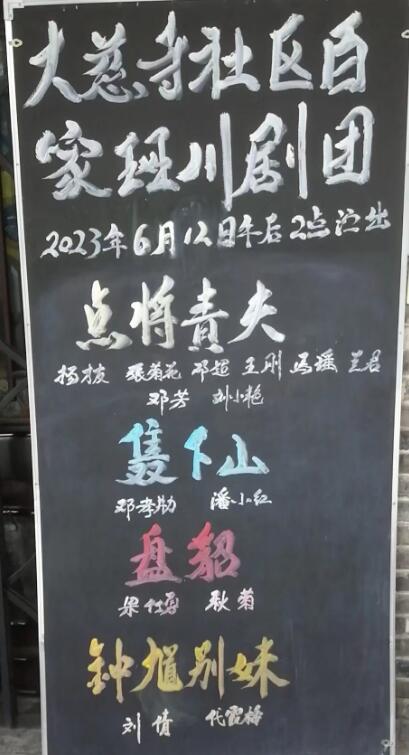 大慈寺社区百
家班川剧团
2023年6月12日午后2点演出
点将责夫
杨枝 張菊花 邓超 王刚 馬瑶 兰君
邓芳 刘小艳
聂下山
邓孝勋 潘小红
盘貂
梁仕勇 耿菊
鈡馗别妹
刘倩 代霞